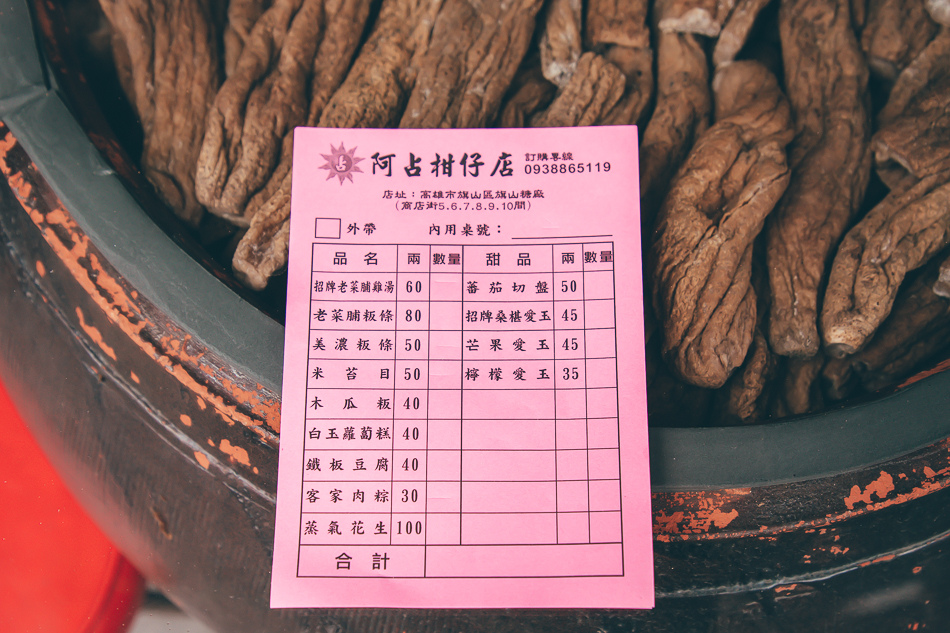 占 阿占柑仔店 訂購專線
0938865119
店址：高雄市旗山區旗山糖廠
（商店街5.6.7.8.9.10間）
外帶 內用桌號：
品名 兩 數量 甜品 兩 數量
招牌老菜脯雞湯 60 蕃茄切盤 50
老菜脯粄條 80 招牌桑椹愛玉 45
美濃粄條 50 芒果愛玉 45
米苔目 50 檸檬愛玉 35
木瓜粄 40
白玉蘿蔔糕 40
鐵板豆腐 40
客家肉粽 30
蒸氣花生 100
合計